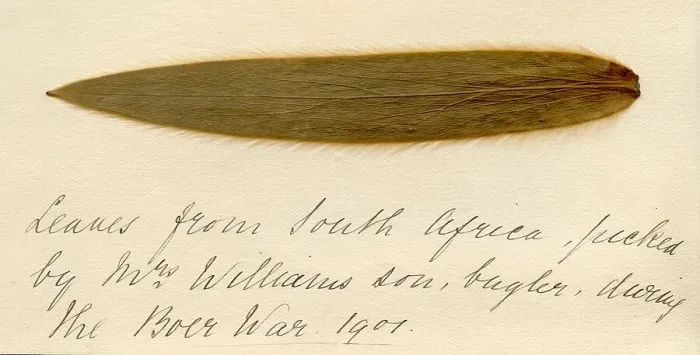 Leaves from South Africa, picked
by Mrs Williams son, bugler, during
the Boer War. 1901.